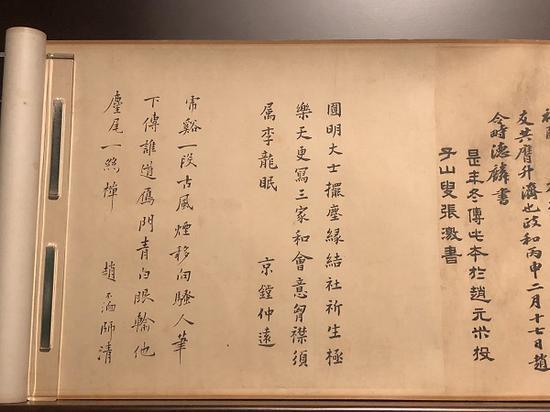 友共曆升濟也政和丙申二月十七日趙
令時德麟書
是年冬傳此本於趙元
子山叟張激書
圓明大士擺塵緣結社祈生極
樂天更寫三家和會意胷襟須
属李龍眠 京鏜仲遠
虎谿一段古風煙移向騷人筆
下傳誰道鴈門青白眼輸他
麈尾一絲禪 趙不師清